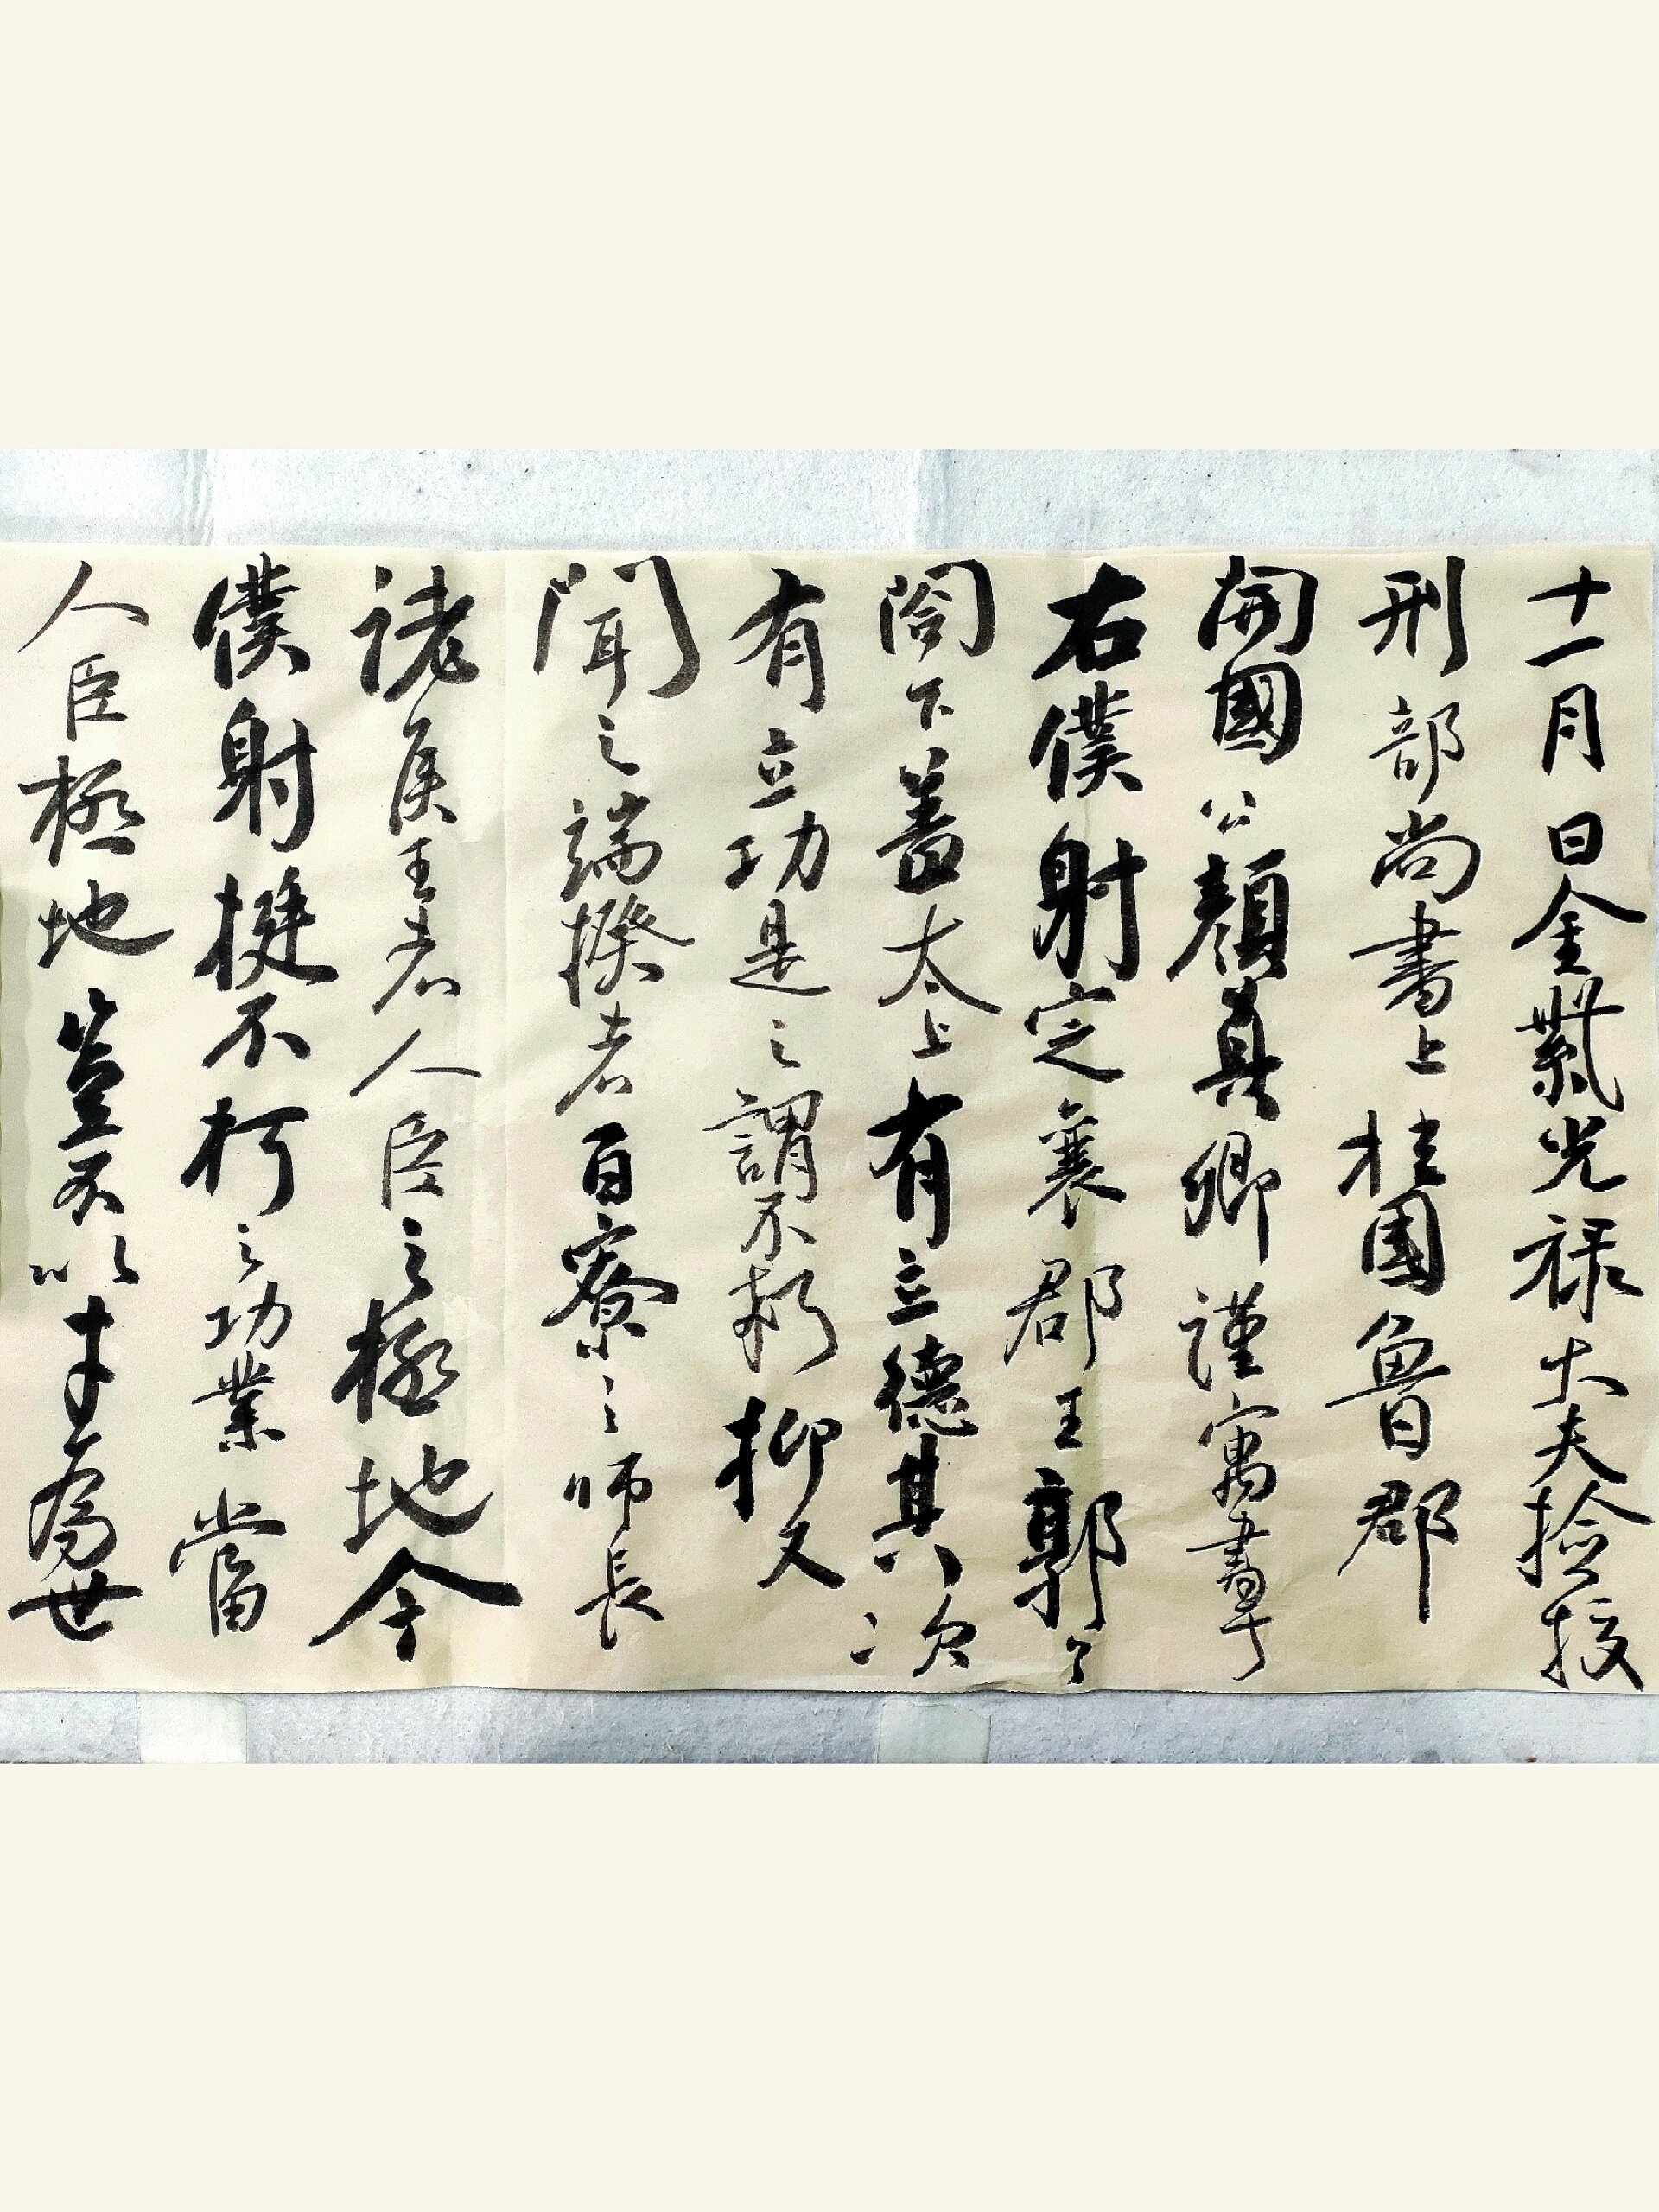 十一月日金紫光禄大夫捡挍
刑部尚書上柱國魯郡
開國公顔真卿謹寓書于
右僕射定襄郡王郭公
閤下蓋太上有立德其次
有立功是之謂不朽抑又
聞之端揆者百寮之師長
諸侯王者人臣之極地今
僕射挺不朽之功業當
人臣極地豈不以才為世